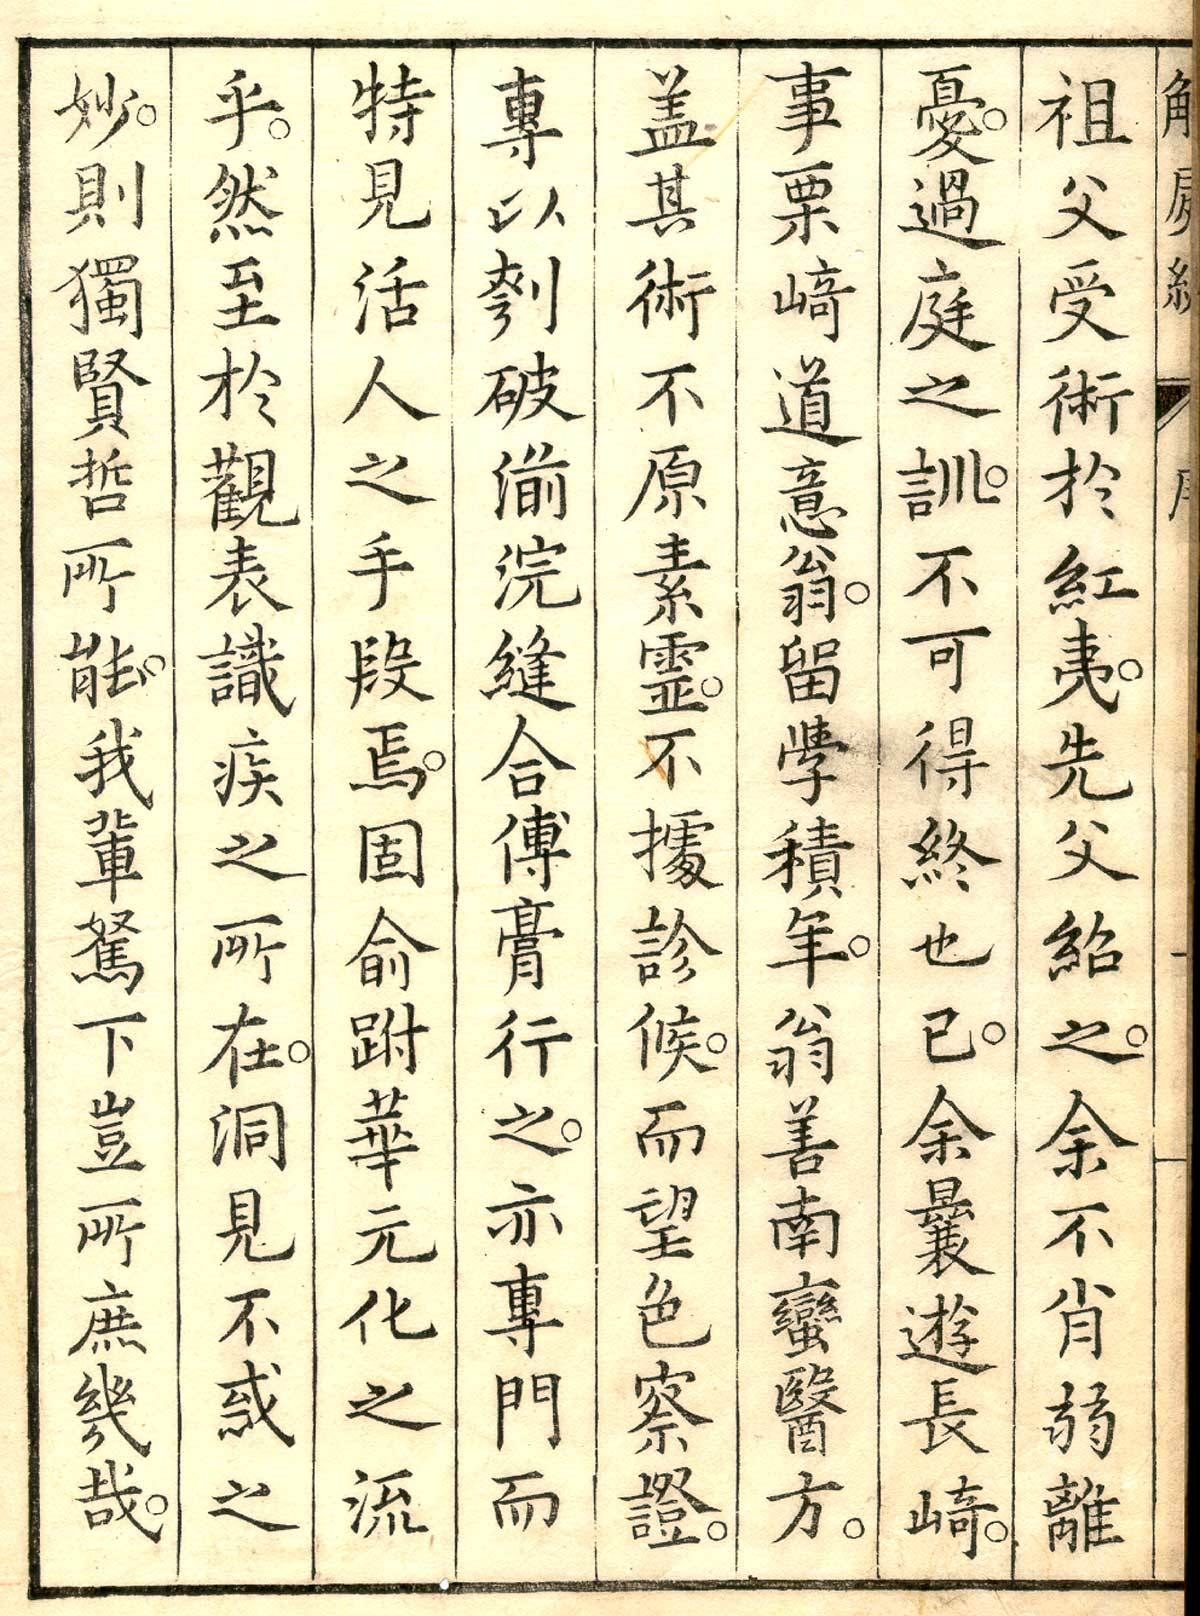 解屍編 序
祖父受術於紅夷。先父紹之。余不肖弱離
憂。過庭之訓。不可得終也已。余曩遊長崎。
事栗崎道意翁。留學積年。翁善南蠻醫方。
盖其術不原素霊。不據診候。而望色察證。
專以刳破湔浣縫合傅膏行之。亦專門而
特見活人之手段焉。固俞跗華元化之流
乎。然至於觀表識疾之所在。洞見不惑之
妙。則獨賢哲所能。我輩駑下豈所庶幾哉。